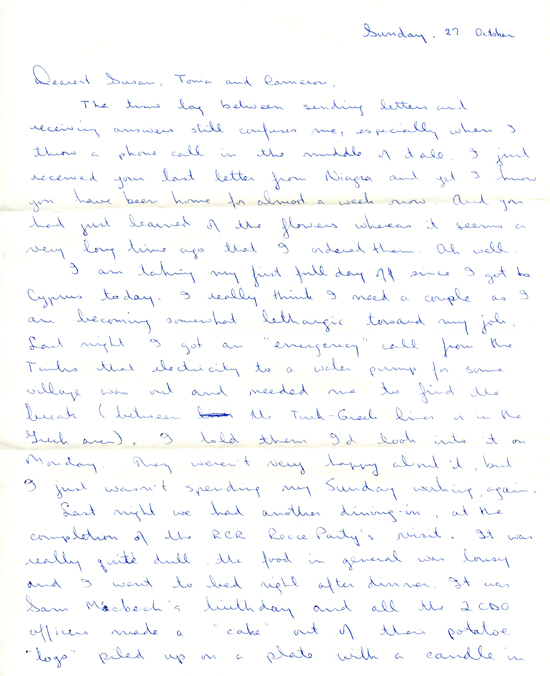 Sunday. 27 October
Dearest Susan, Toma and Cameron,
The time lag between sending letters and
receiving answers still confuses me, especially when I
throw a phone call in the middle of it all. I just
received your last letter from Niagra and yet I know
you have been home for almost a week now. And you
had just learned of the flowers whereas it seems a
very long time ago that I ordered them. Ah well.
I am taking my first full day off since I got to
Cyprus today. I really think I need a couple as I
am becoming somewhat lethargic toward my job.
Last night I got an "emergency" call from the
Turks that electricity to a water pump for some
village was out and needed me to find the
break (between the Turk-Greek lines or in the
Greek area). I told them I'd look into it on
Monday. They weren't very happy about it, but
I just wasn't spending my Sunday working, again.
Last night we had another dining-in, at the
completion of the RCR Recce Party's visit. It was
really quite dull, the food in general was lousy
and I went to bed right after dinner. It was
Sam Macbeth's birthday and all the 2 CDO
officers made a "cake" out of their potatoe
"logs" piled up on a plate with a candle in